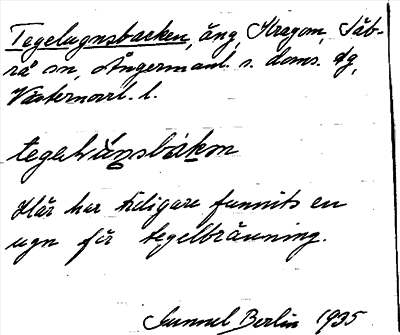 Tegelugnsbacken, äng, Kragom, Säb-
rå sn, Ångermanl. s. doms. dg,
Västernorrl. l.
tegəl
Här har tidigare funnits en
ugn för tegelbränning.
Gunnel Berlin 1935